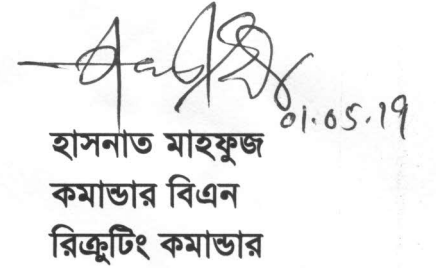 01.05.19
হাসনাত মাহফুজ
কমান্ডার বিএন
রিক্রুটিং কমান্ডার